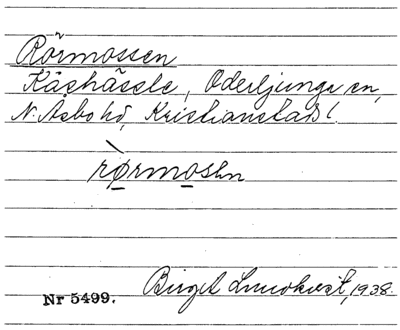 Rörmossen
Käshässle, Oderljunga sn,
N. Åsbo hd, Kristianstads l.
rørmosən
Birgit Lundkvist, 1938.
Nr 5499.